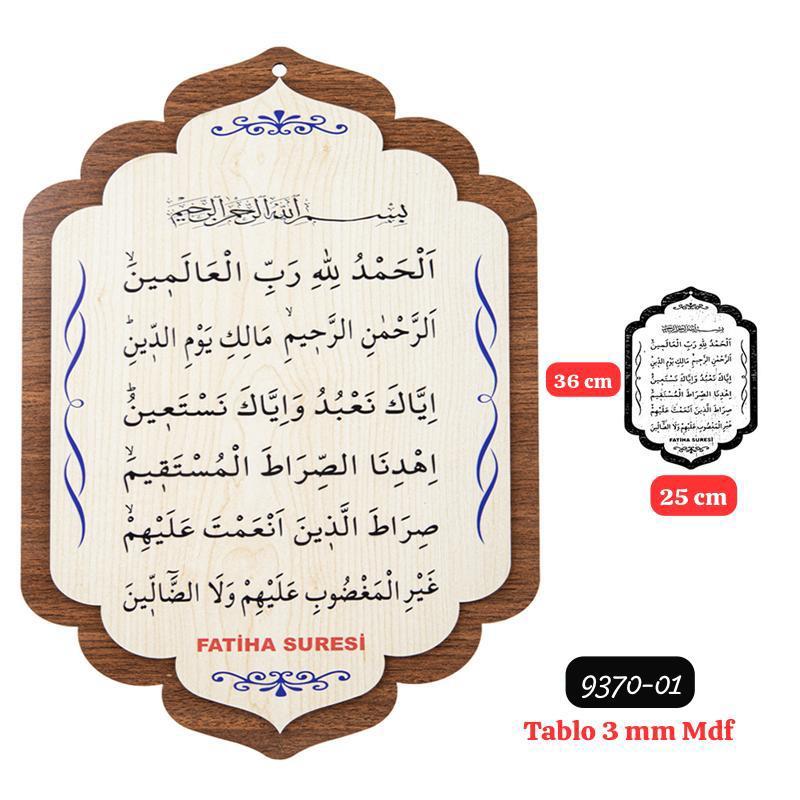 بِسْمِ اللهِ الرَّحْمٰنِ الرَّحِيمِ
اَلْحَمْدُ لِلّٰهِ رَبِّ الْعَالَمٖينَۙ
اَلرَّحْمٰنِ الرَّحٖيمِۙ مَالِكِ يَوْمِ الدّٖينِؕ
اِيَّاكَ نَعْبُدُ وَاِيَّاكَ نَسْتَعٖينُؕ
اِهْدِنَا الصِّرَاطَ الْمُسْتَقٖيمَۙ
صِرَاطَ الَّذٖينَ اَنْعَمْتَ عَلَيْهِمْۙ
غَيْرِ الْمَغْضُوبِ عَلَيْهِمْ وَلَا الضَّٓالّٖينَ
FATİHA SURESİ
36 cm
بِسْمِ اللهِ الرَّحْمٰنِ الرَّحِيمِ
اَلْحَمْدُ لِلّٰهِ رَبِّ الْعَالَمٖينَۙ
اَلرَّحْمٰنِ الرَّحٖيمِۙ مَالِكِ يَوْمِ الدّٖينِؕ
اِيَّاكَ نَعْبُدُ وَاِيَّاكَ نَسْتَعٖينُؕ
اِهْدِنَا الصِّرَاطَ الْمُسْتَقٖيمَۙ
صِرَاطَ الَّذٖينَ اَنْعَمْتَ عَلَيْهِمْۙ
غَيْرِ الْمَغْضُوبِ عَلَيْهِمْ وَلَا الضَّٓالّٖينَ
FATİHA SURESİ
25 cm
9370-01
Tablo 3 mm Mdf